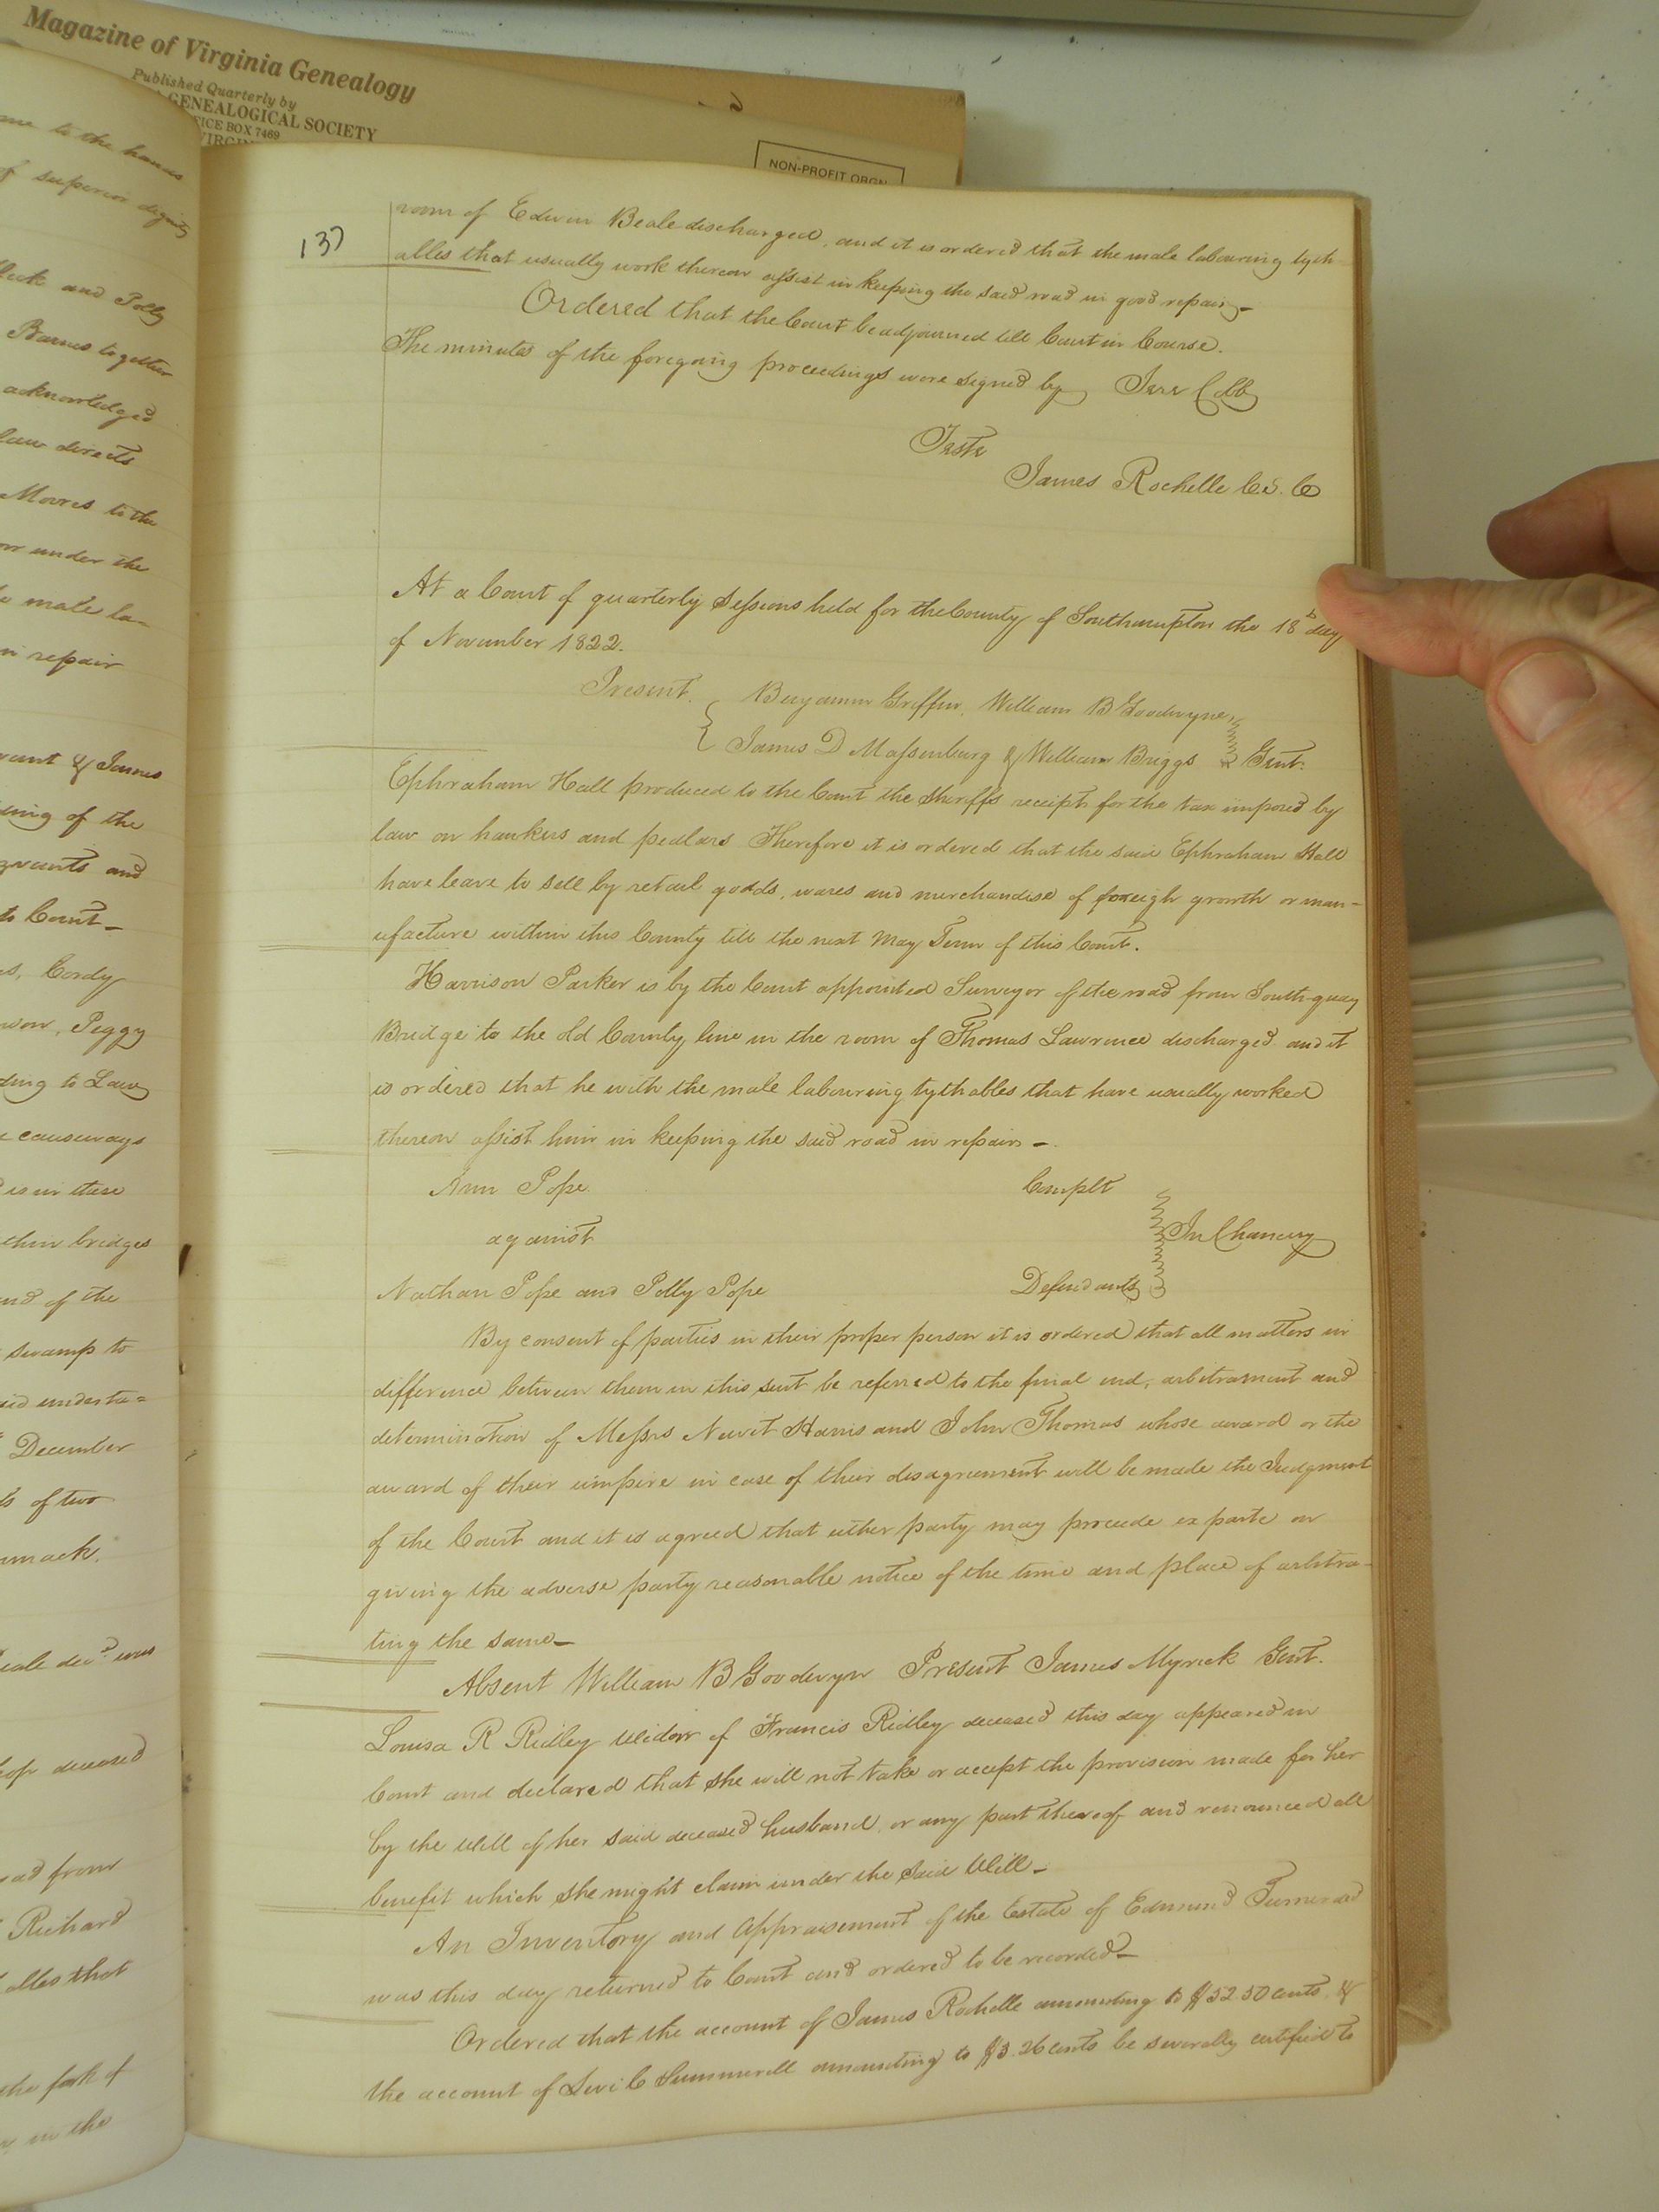 Magazine of Virginia Genealogy
Published Quarterly by
GENEALOGICAL SOCIETY
ICE BOX 7469
NON-PROFIT ORGN
me to the hands
of superior dignity
and Polly
Barnes together
acknowledged
law directs
Moores to the
or under the
male la-
in repair
& James
ing of the
and
to Court
Cordy
Peggy
ding to Law
causeways
is in these
thin bridges
and of the
swamp to
undertu=
December
ts of two
mack.
decd. was
deceased
ad from
Richard
alles that
the fork of
in the
137
room of Edwin Beale discharged, and it is ordered that the male labouring tyth
alles that usually work thereon assist in keeping the said road in good repair –
Ordered that the Court be adjourned till Court in Course.
The minutes of the foregoing proceedings were signed by Jere Cobb
Teste
James Rochelle C.S.C
At a Court of quarterly Sessions held for the County of Southampton the 18th day
of November 1822.
Present. Benjamin Griffin, William B Goodwyn
James D Massenburg & William Briggs Gent.
Ephraham Hall produced to the Court the Sheriffs receipt for the tax imposed by
law on hawkers and pedlars Therefore it is ordered that the said Ephraham Hall
have leave to sell by retail goods, wares and merchandise of foreigh growth or man-
ufacture within this County till the next May Term of this Court.
Harrison Parker is by the Court appointed Surveyor of the road from South-quay
Bridge to the old County line in the room of Thomas Lawrence discharged and it
is ordered that he with the male labouring tythables that have usually worked
thereon assist him in keeping the said road in repair –
Ann Pope Complt
against In Chancery
Nathan Pope and Polly Pope Defendants
By consent of parties in their proper person it is ordered that all matters in
difference between them in this suit be referred to the final end, arbitrament and
determination of Messrs Newit Harris and John Thomas whose award or the
award of their umpire in case of their disagreement will be made the Judgment
of the Court and it is agreed that either party may proceede ex parte on
giving the adverse party reasonable notice of the time and place of arbitra-
ting the same –
Absent William B Goodwyn Present James Myrick Gent.
Louisa R Ridley Widow of Francis Ridley deceased this day appeared in
Court and declared that she will not take or accept the provision made for her
by the Will of her said deceased husband, or any part thereof and renounced all
benefit which she might claim under the said Will –
An Inventory and Appraisement of the Estate of Edmund Turner decd
was this day returned to Court and ordered to be recorded –
Ordered that the account of James Rochelle amounting to $52.50 cents, &
the account of Levi C Summerell amounting to $3.26 cents be severally certified to